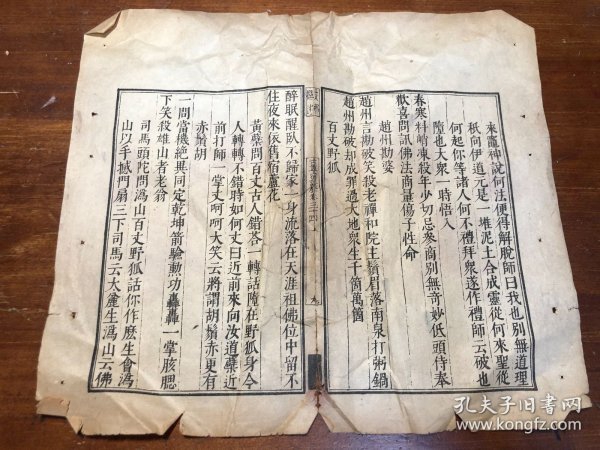 來竈神說何法便得解脫師曰我也別無道理
秪向伊道元是一堆泥土合成靈從何來聖從
何起你等諸人何不禮拜衆遂作禮師云破也
墮也大衆一時悟入
春寒料峭凍殺年少切忌參商別無奇妙低頭侍奉
歡喜問訊佛法商量傷子性命
趙州勘婆
趙州言勘破笑殺老禪和院主鬚眉落南泉打粥鍋
趙州勘破却成罪過大地衆生千箇萬箇
百丈野狐
醉眠醒臥不歸家一身流落在天涯祖佛位中留不
住夜來依舊宿蘆花
黃檗問百丈古人錯荅一轉語墮在野狐身今
人轉轉不錯時如何丈曰近前來向汝道檗近
前打師一掌丈呵呵大笑云將謂胡鬚赤更有
赤鬚胡
一問當機絕異同定乾坤箭驗勳功轟轟一掌腦腮
下笑殺雄山者老翁
司馬頭陀問潙山百丈野狐話你作麽生會潙
山以手撼門扇三下司馬云太麄生潙山云佛
孔夫子旧书网
www.kongfz.com